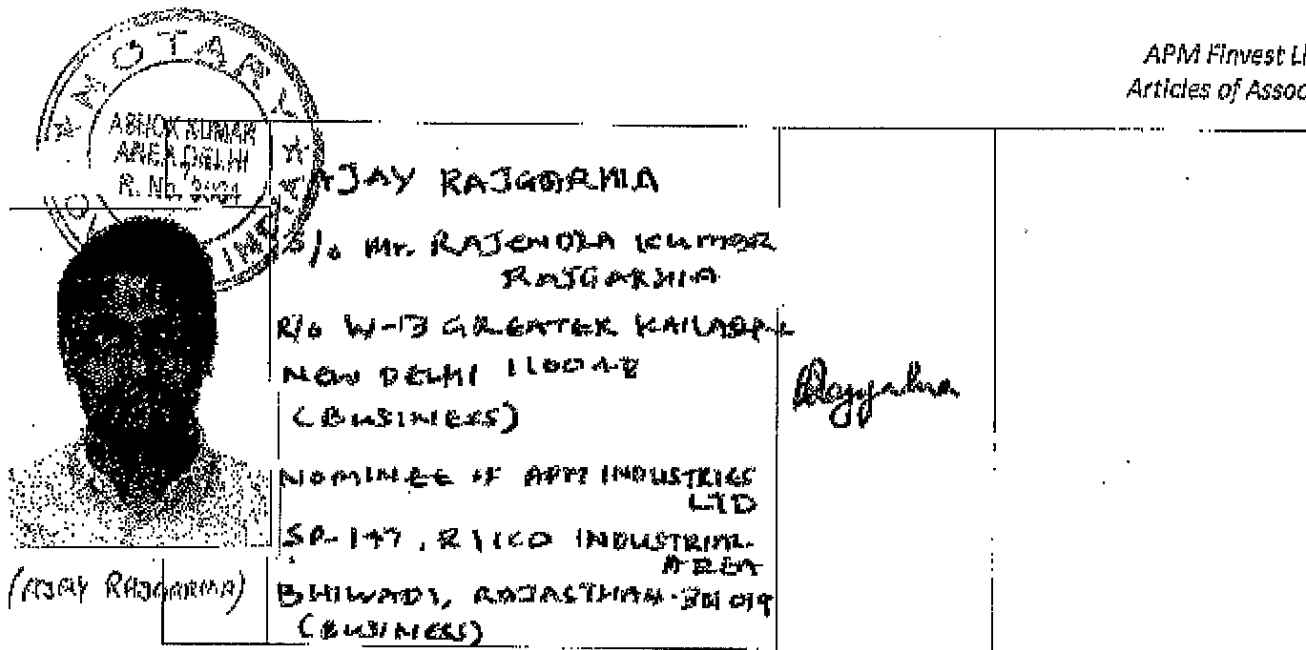 APM Finvest Li
Articles of Assoc
NOTARY
ASHOK KUMAR
AREA DELHI
R. No.
INDIA
AJAY RAJGARHIA
S/o Mr. RAJENDRA KUMAR
RAJGARHIA
R/o W-13 GREATER KAILASH-
NEW DELHI
(BUSINESS)
NOMINEE OF APM INDUSTRIES
LTD
SP-147, RIICO INDUSTRIAL
AREA
BHIWADI, RAJASTHAN-301 019
(BUSINESS)
(AJAY RAJGARHIA)